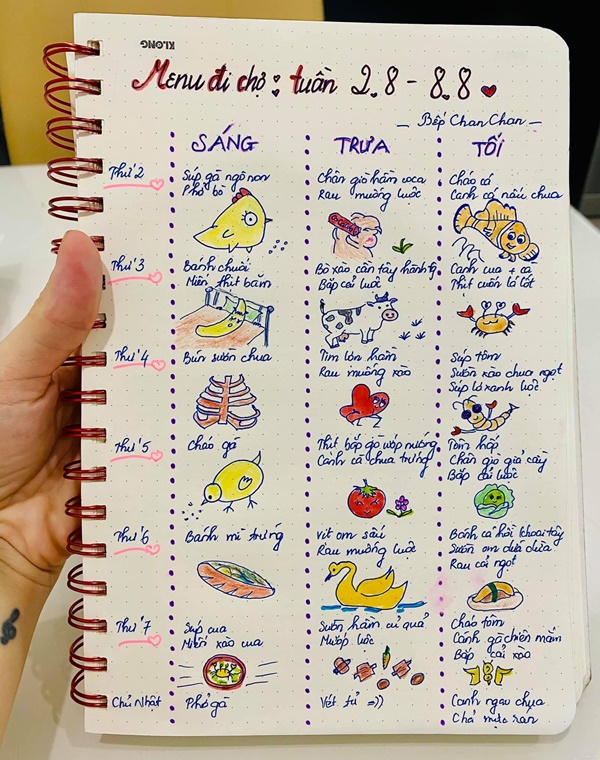 KLONG
Menu đi chợ: tuần 2.8 - 8.8
_ Bếp Chan Chan _
SÁNG TRƯA TỐI
Thứ 2
Súp gà ngô non
Phở bò
Chân giò hầm coca
Rau muống luộc
Cháo cá
Canh cá nấu chua
Thứ 3
Bánh chuối
Miến thịt băm
Bò xào cần tây hành tỏ
Bắp cải luộc
Canh cua + cà
Thịt cuốn lá lốt
Thứ 4
Bún sườn chua
Tim lợn hầm
Rau muống xào
Súp tôm
Sườn xào chua ngọt
Súp lơ xanh luộc
Thứ 5
Cháo gà
Thịt bắp gà ướp nướng
Canh cà chua trứng
Tôm hấp
Chân giò giả cầy
Bắp cải luộc
Thứ 6
Bánh mì trứng
Vịt om sấu
Rau muống luộc
Bánh cá hồi khoai tây
Sườn om dứa dừa
Rau cải ngọt
Thứ 7
Súp cua
Miến xào cua
Sườn hầm củ quả
Mướp luộc
Cháo tôm
Cánh gà chiên mắm
Bắp cải xào
Chủ Nhật
Phở gà
Vét tủ =))
Canh ngao chua
Chả mực rán